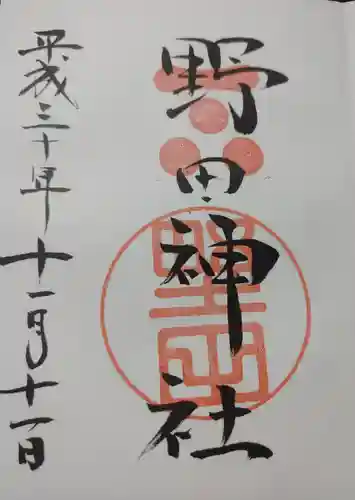 野田神社
平成三十年十一月十一日
野田